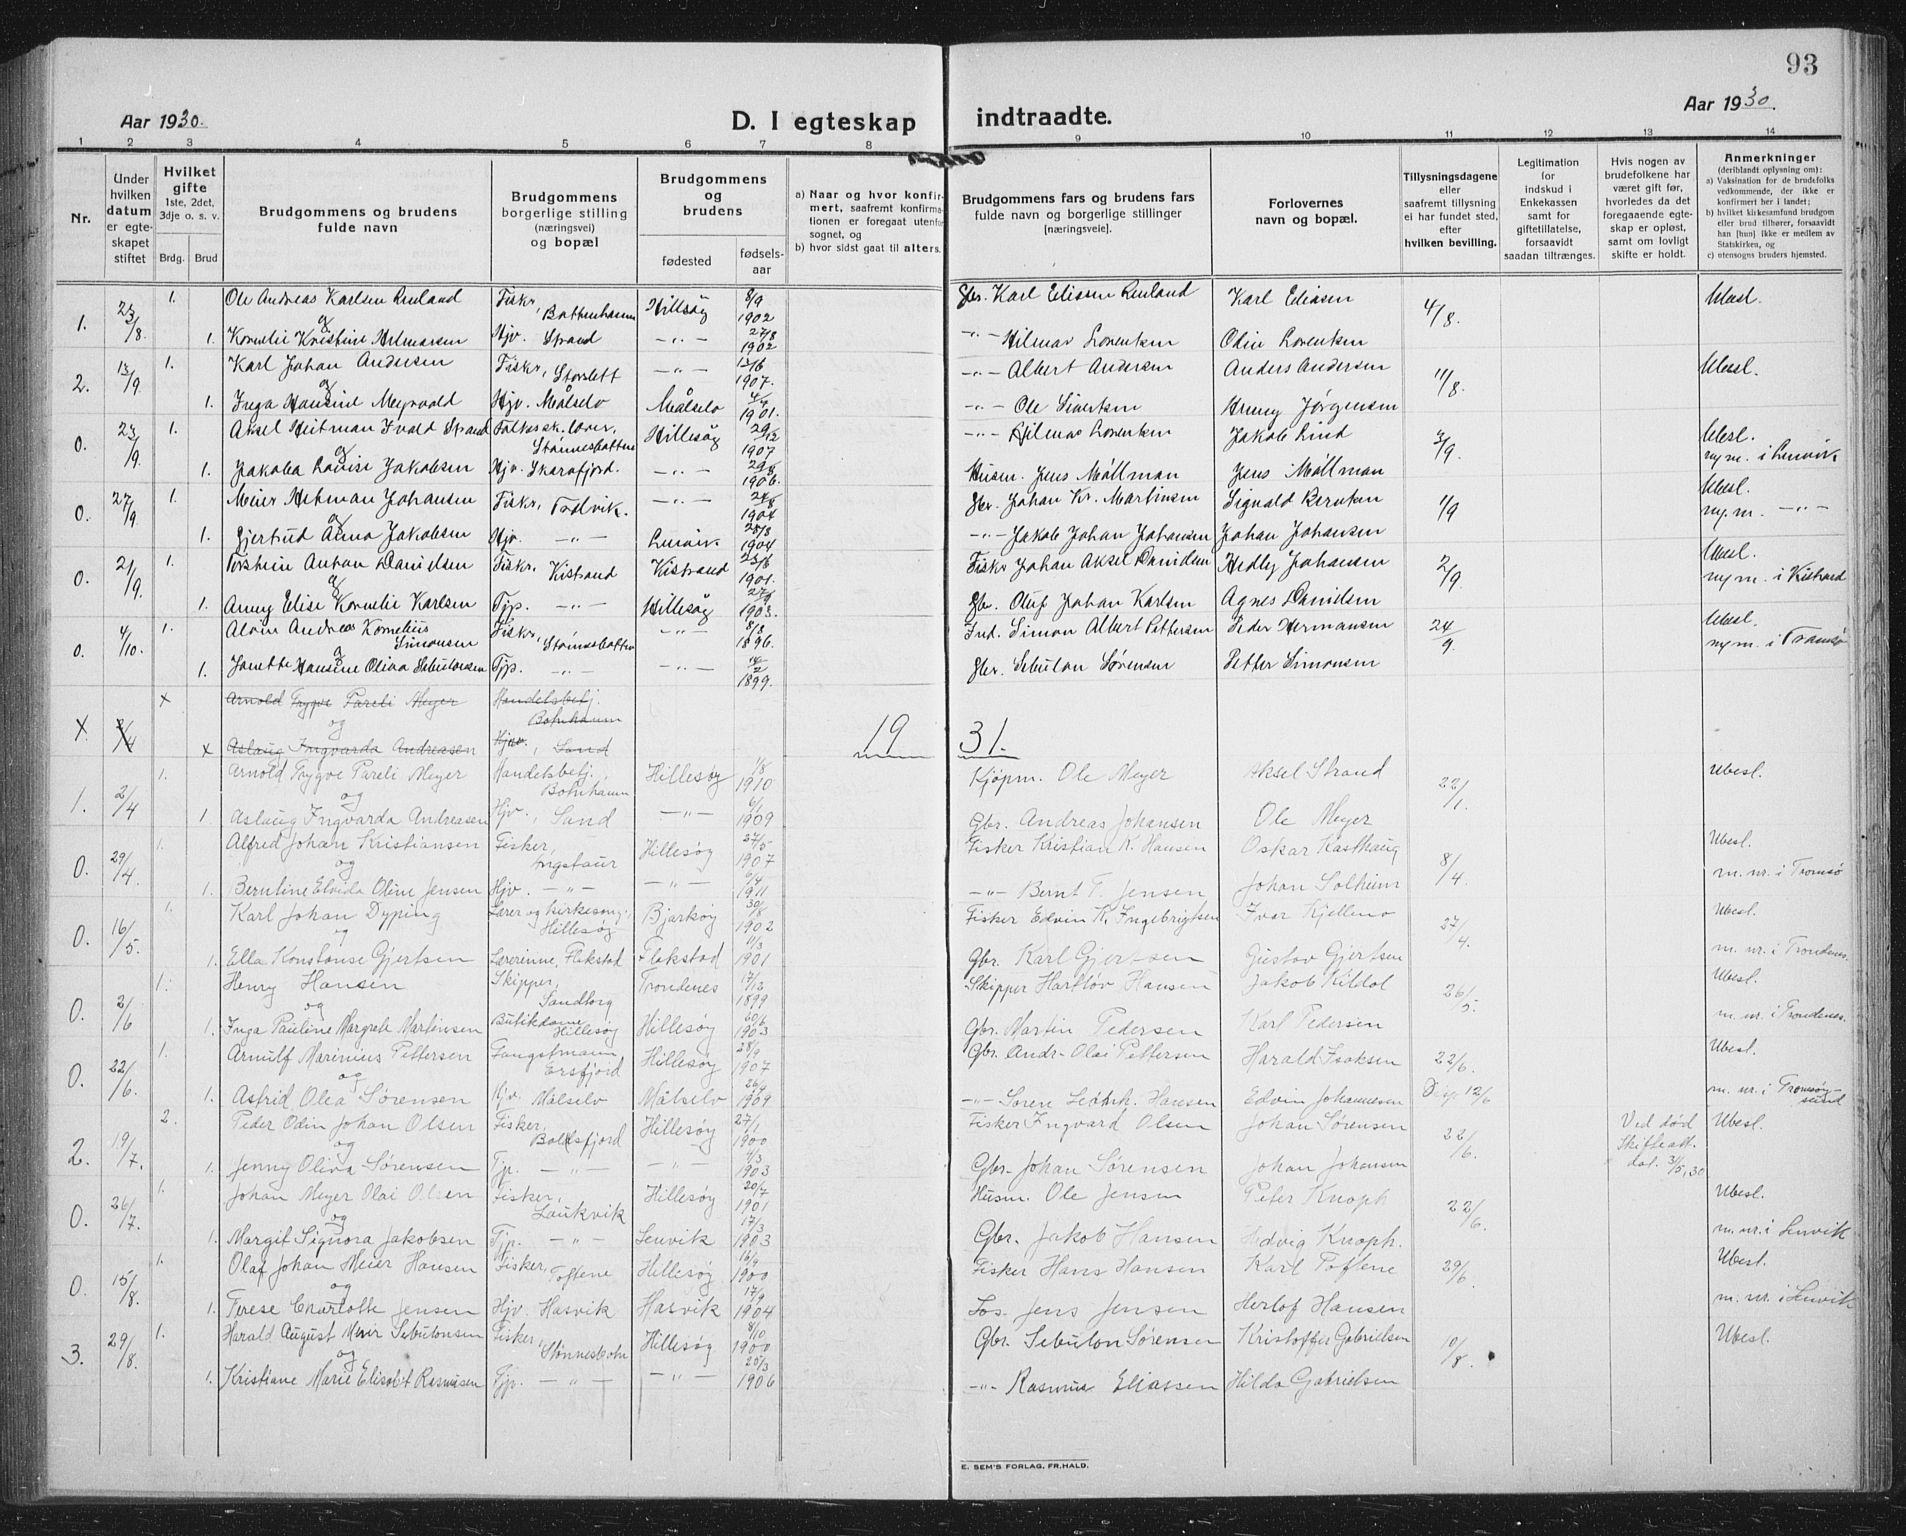 93
Aar 1930.
D. I egteskap indtraadte.
Aar 1930.
1 2 3 4 5 6 7 8 9 10 11 12 13 14
Nr.
Under hvilken datum er egteskapet stiftet
Hvilket gifte 1ste, 2det, 3dje o. s. v.
Brdg. Brud
Brudgommens og brudens fulde navn
Brudgommens borgerlige stilling (næringsvei) og bopæl
Brudgommens og brudens
fødested
fødsels-aar
a) Naar og hvor konfirmert, saafremt konfirmationen er foregaat utenfor sognet, og
b) hvor sidst gaat til alters.
Brudgommens fars og brudens fars fulde navn og borgerlige stillinger [næringsvei].
Forlovernes navn og bopæl.
Tillysningsdagene eller saafremt tillysning ei har fundet sted, efter hvilken bevilling.
Legitimation for indskud i Enkekassen samt for giftetillatelse, forsaavidt saadan tiltrænges.
Hvis nogen av brudefolkene har været gift før, hvorledes da det foregaaende egteskap er opløst, samt om lovligt skifte er holdt.
Anmerkninger (deriblandt oplysning om):
a) Vaksination for de brudefolks vedkommende, der ikke er konfirmert her i landet;
b) hvilket kirkesamfund brudgom eller brud tilhører, forsaavidt han [hun] ikke er medlem av Statskirken, og
c) utensogns bruders hjemsted.
1. 23/8 1. Ole Andreas Karlsen Renland Fiskr, Bottenhavn Hillesøy 8/9 1902 Gbr. Karl Eliasen Renland Karl Eliasen 4/8. Ubesl.
og
1. Kornelie Kristine Hilmarsen Hjv. Strand —"— 27/8 1902 —"— Hilmar Lorentzen Odin Lorentzen
2. 13/9 1. Karl Johan Andersen Fiskr, Storslett —"— 1907. —"— Albert Andersen Anders Andersen 11/8. Ubesl.
og
1. Inga Hansine Meyvold Hjv. Målselv Målselv 1901. —"— Ole Sivertsen Jørgensen
0. 23/9 1. Aksel Heitman Ivald Strand Folkesk.lærer, Stønnesbotten Hillesøy 29/12 1907 —"— Hilmar Lorentzen Jakob Lind 3/9. Ubesl.
1. Jakoba Lovise Jakobsen Hjv. Skarsfjord. —"— 29/8 1906. Husm. Jens Møllman Jens Møllman ny m. i Lenvik
0. 27/9 1. Meier Hitman Johansen Fiskr, —"— 24/8 1904 Gbr. Johan Kr. Martinsen Signald Berntzen 1/9 Ubesl.
og
1. Gjertrud Anna Jakobsen Hjv. —"— Lenvik. 1904 —"— Jakob Johan Johansen Johan Johansen ny.m. —"—
0. 21/9. 1. Torstein Anton Danielsen Fiskr, Kistrand Kistrand 23/6 1901. Fiskr Johan Aksel Danielsen Hedley Johansen 2/9 Ubesl.
og
1. Anny Elise Kornelie Karlsen Tjp. —"— Hillesøy 1903. Gbr. Oluf Johan Karlsen Agnes Danielsen ny m. i Kistrand
0. 4/10. 1. Alvin Andreas Kornelius Simonsen Fiskr, Stønnesbotten —"— 8/3 1896. Ind. Simon Albert Pettersen Peder Hermansen 24/9 Ubesl.
og
1. Janette Hansine Oliva Sebulonsen Tjp. —"— —"— 14/2 1899. Gbr. Sebulon Sørensen Petter Simonsen ny m. i Tromsø
X. 2/4 x Arnold Trygve Pareli Meyer Handelsbetj. Botnhavn
og
x Aslaug Ingvarda Andreasen Hjv., Sand
1931.
1. 2/4 1. Arnold Trygve Pareli Meyer Handelsbetj. Botnhavn Hillesøy 1/8 1910 Kjøpm. Ole Meyer Aksel Strand 22/1. Ubesl.
og
1. Aslaug Ingvarda Andreasen Hjv., Sand —"— 6/1 1909 Gbr. Andreas Johansen Ole Meyer
0. 29/4 1. Alfred Johan Kristiansen Fisker, Angstaur Hillesøy 27/5 1907 Fisker Kristian K. Hansen Oskar Kasthaug 8/4. Ubesl.
og
1. Berntine Elvida Oline Jensen Hjv. —"— —"— 6/4 1911 —"— Bernt T. Jensen Johan Solheim m. nr. i Tromsø
0. 16/5. 1. Karl Johan Dyping Lærer og kirkesang., Hillesøy Bjarkøy 30/8 1902 Fisker Edvin K. Ingebrigtsen Ivar Kjellmo 27/4. Ubesl.
og
1. Ella Konstanse Gjertsen Lærerinne, Flakstad Flakstad 11/3 1901 Gbr. Karl Gjertsen Gustav Gjertsen m. nr. i Trondenes.
0. 2/6 1. Henry Hansen Skipper, Sandtorg Trondenes 17/12 1899 Skipper Hartløv Hansen Jakob Kildal 26/5. Ubesl.
og
1. Inga Pauline Margrete Martinsen Butikdame Hillesøy Hillesøy 20/6 1903 Gbr. Martin Pedersen Karl Pedersen m. nr. i Trondenes.
0. 22/6. 1. Arnulf Marinius Pettersen Fangstmann Ersfjord Hillesøy 28/9 1907 Gbr. Andr. Olai Pettersen Harald Isaksen 22/6. Ubesl.
og
1. Astrid Olea Sørensen Hjv. Målselv Målselv 1909 —"— Sørene Hansen Edvin Johannesen Disp 12/6 m. nr. i Tromsøysund
2. 19/7. 2. Peder Odin Johan Olsen Fisker, Baltsfjord Hillesøy 27/1 1900 Fisker Ingvard Olsen Johan Sørensen 22/6. Ved død Skifteatt. dat. 31/5,30 Ubesl.
og
1. Jenny Oliva Sørensen Tj. —"— —"— 4/3 1903 Gbr. Johan Sørensen Johan Johansen
0. 26/7. 1. Johan Meyer Olai Olsen Fisker, Laukvik Hillesøy 20/7 1901 Husm. Ole Jensen Peter Knoph 22/6. Ubesl.
og
1. Margit Signora Jakobsen Tj. —"— Lenvik 17/3 1903 Gbr. Jakob Hansen Hedvig Knoph. m. nr. i Lenvik
0. 15/8. 1. Olaf Johan Meier Hansen Fisker, Toftene Hillesøy 16/9 1900 Fisker Hans Hansen Karl Toftene 29/6. Ubesl.
og
1. Terese Charlotte Jensen Hjv. Hasvik Hasvik 17/9 1904 Los. Jens Jensen Herlof Hansen m. nr. i Lenvik
3. 29/8. 1. Harald August Meier Sebulonsen Fisker, Stønnesbotn Hillesøy 8/10 1900 Gbr. Sebulon Sørensen Kristoffer Gabrielsen 10/8. Ubesl.
og
1. Kristiane Marie Elisabet Rasmusen Tjp. —"— —"— 20/3 1906 —"— Rasmus Eliassen Hilda Gabrielsen
E. SEM'S FORLAG, FR.HALD.